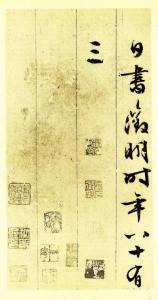 日書徵明時年八十有
三